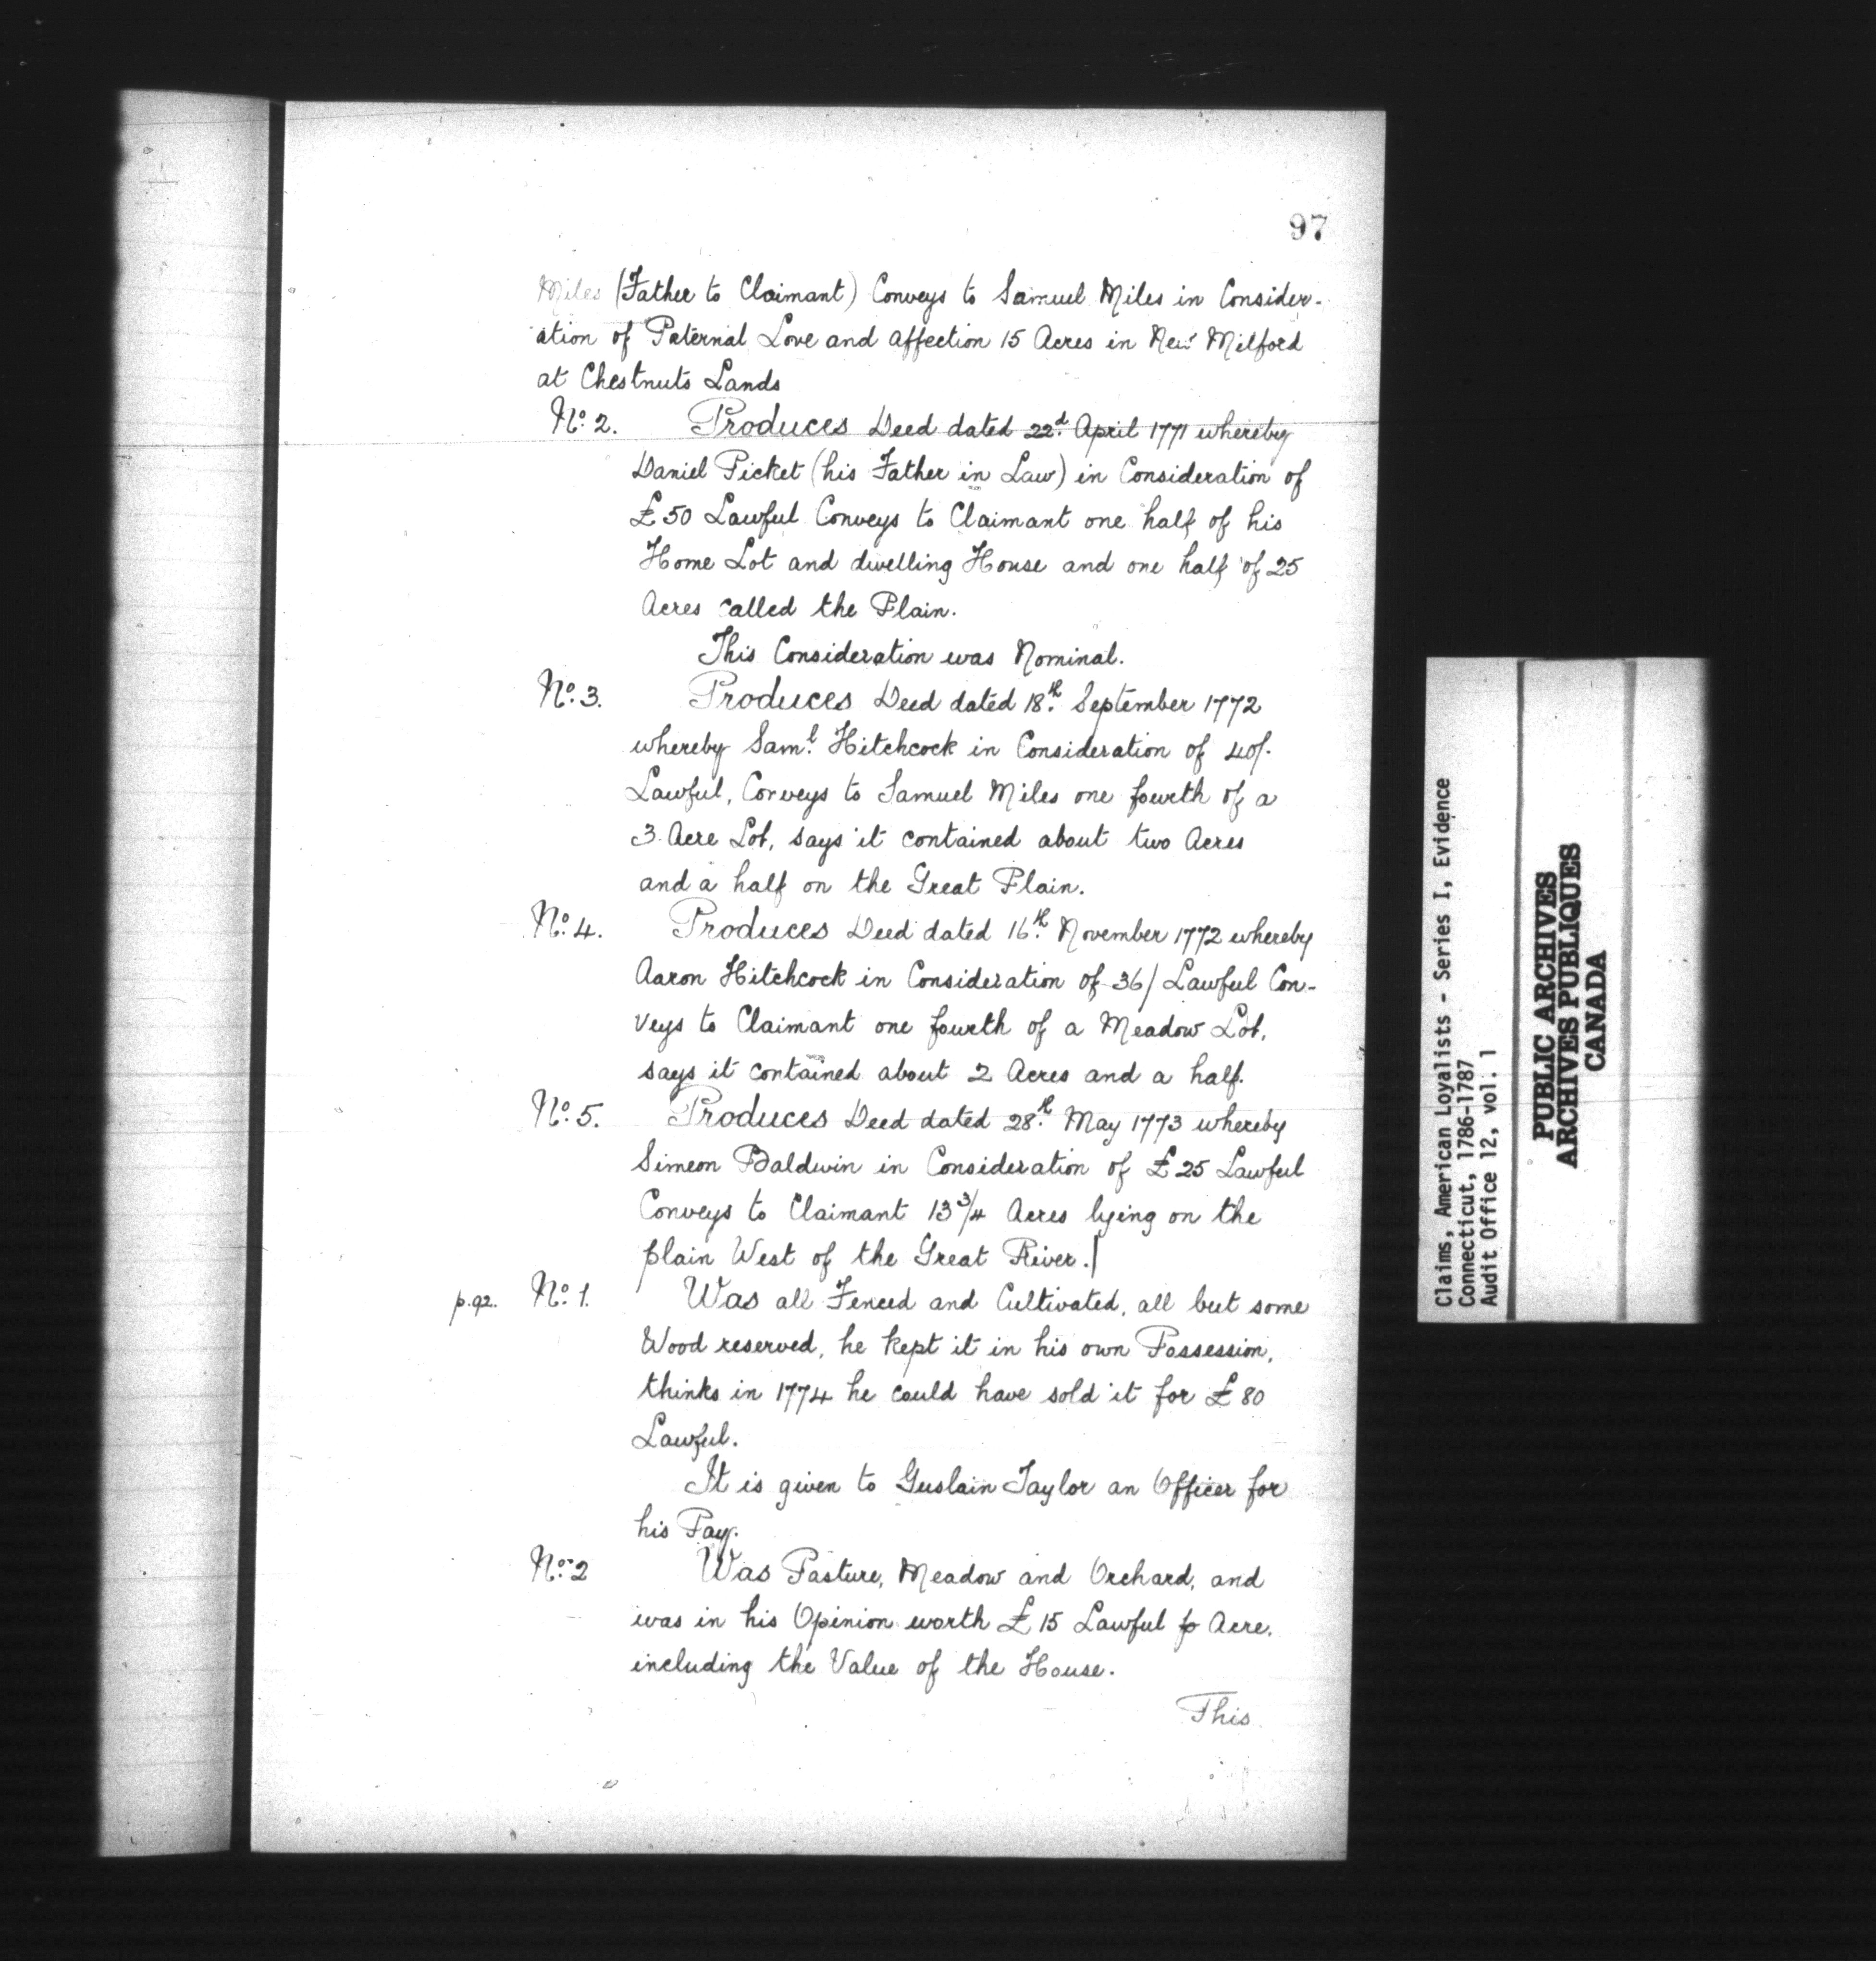 97
Miles (Father to Claimant) Conveys to Samuel Miles in Consider-
ation of Paternal Love and affection 15 Acres in New Milford
at Chestnuts Lands
No. 2. Produces Deed dated 22d. April 1771 whereby
Daniel Picket (his Father in Law) in Consideration of
£50 Lawful Conveys to Claimant one half of his
Home Lot and dwelling House and one half of 25
Acres called the Plain.
This Consideration was Nominal.
No. 3. Produces Deed dated 18th. September 1772
whereby Saml. Hitchcock in Consideration of 40/.
Lawful, Conveys to Samuel Miles one fourth of a
3 Acre Lot, says it contained about two Acres
and a half on the Great Plain.
No. 4. Produces Deed dated 16th. November 1772 whereby
Aaron Hitchcock in Consideration of 36/ Lawful Con-
veys to Claimant one fourth of a Meadow Lot,
says it contained about 2 Acres and a half.
No. 5. Produces Deed dated 28th. May 1773 whereby
Simeon Baldwin in Consideration of £25 Lawful
Conveys to Claimant 13 3/4 Acres lying on the
plain West of the Great River.|
p.92. No. 1. Was all Fenced and Cultivated, all but some
Wood reserved, he kept it in his own Possession,
thinks in 1774 he could have sold it for £80
Lawful.
It is given to Guslain Taylor an Officer for
his Pay.
No. 2 Was Pasture, Meadow and Orchard, and
was in his Opinion worth £15 Lawful p Acre,
including the Value of the House.
This
Claims, American Loyalists - Series I, Evidence
Connecticut, 1786-1787
Audit Office 12, vol. 1
PUBLIC ARCHIVES
ARCHIVES PUBLIQUES
CANADA